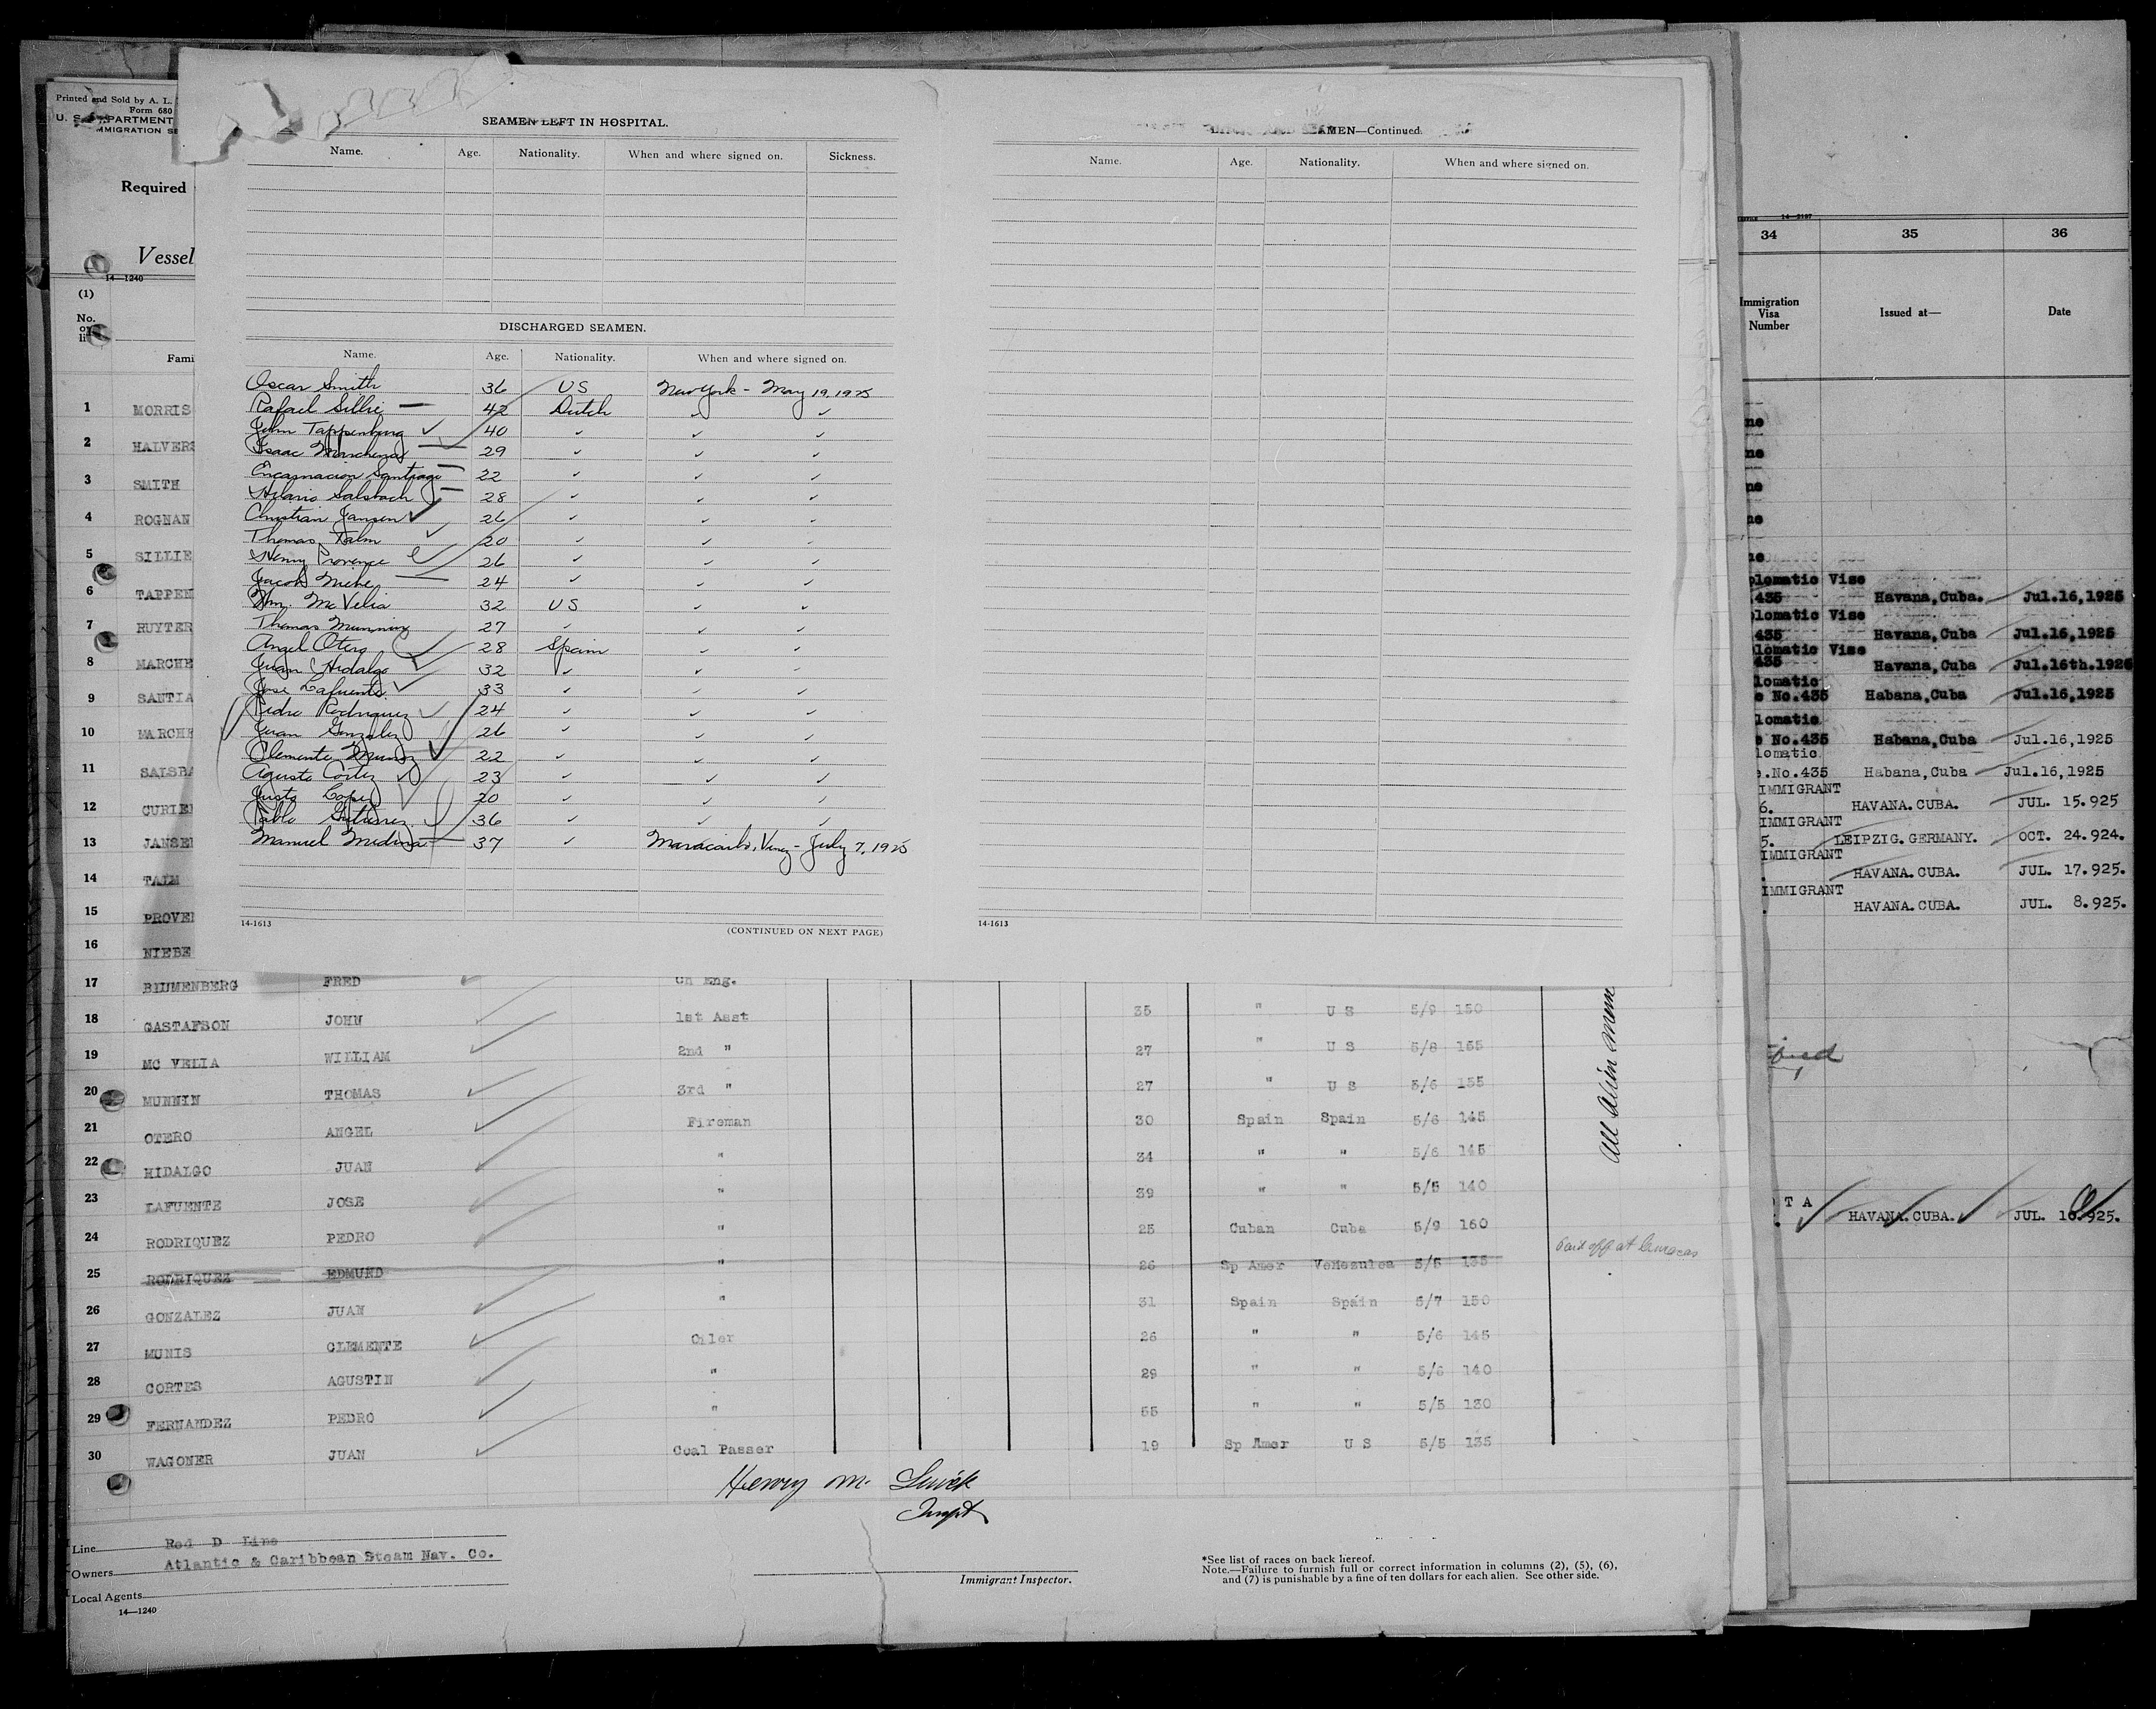 Printed and Sold by A. L.
Form 680
U. S. DEPARTMENT
IMMIGRATION SE
Required
Vessel
14—1240
(1)
No.
on
li
Fami
1 MORRIS
2 HALVERS
3 SMITH
4 ROGNAN
5 SILLIE
6 TAPPEN
7 RUYTER
8 MARCHE
9 SANTIA
10 MARCHE
11 SALSBA
12 CURIE
13 JANSE
14 TAIM
15 PROVE
16 NIEBE
SEAMEN LEFT IN HOSPITAL.
Name. Age. Nationality. When and where signed on. Sickness.
DISCHARGED SEAMEN.
Name. Age. Nationality. When and where signed on.
Oscar Smith 36 US New York - May 19, 1925
Rafael Sillie — 42 Dutch ✓ ✓
John Tappenburg ✓ 40 ✓ ✓ ✓
Isaac Marchena — 29 ✓ ✓ ✓
Encarnacion Santiago — 22 ✓ ✓ ✓
Hilario Salsbach — 28 ✓ ✓ ✓
Christian Jansen ✓ 26 ✓ ✓ ✓
Thomas Talm ✓ 20 ✓ ✓ ✓
Henry Provence 26 ✓ ✓ ✓
Jacob — 24 ✓ ✓ ✓
Wm. McVelia 32 US ✓ ✓
Thomas Munnin 27 ✓ ✓ ✓
Angel Otero 28 Spain ✓ ✓
Juan Hidalgo 32 ✓ ✓ ✓
Jose Lafuente ✓ 33 ✓ ✓ ✓
Pedro Rodriquez ✓ 24 ✓ ✓ ✓
Juan Gonzalez 26 ✓ ✓ ✓
Clemente Munoz 22 ✓ ✓ ✓
Agusto Cortez 23 ✓ ✓ ✓
Justo Lopez 20 ✓ ✓ ✓
Pablo Gutierrez 36 ✓ ✓ ✓
Manuel Medina — 37 ✓ Maracaibo, Venez - July 7, 1925
14-1613
(CONTINUED ON NEXT PAGE)
SEAMEN—Continued.
Name. Age. Nationality. When and where signed on.
14-1613
17 BLUMENBERG FRED Ch Eng.
18 GASTAFSON JOHN 1st Asst 35 " U S 5/9 150
19 MC VELIA WILLIAM 2nd " 27 " U S 5/8 155
20 MUNNIN THOMAS 3rd " 27 " U S 5/6 155
21 OTERO ANGEL Fireman 30 Spain Spain 5/6 145
22 HIDALGO JUAN " 34 " " 5/6 145
23 LAFUENTE JOSE " 39 " " 5/5 140
24 RODRIQUEZ PEDRO " 25 Cuban Cuba 5/9 160
25 RODRIQUEZ EDMUND " 26 Sp Amer Venezulea 5/5 135 Paid off at Curacao
26 GONZALEZ JUAN " 31 Spain Spain 5/7 150
27 MUNIS CLEMENTE Oiler 26 " " 5/6 145
28 CORTES AGUSTIN " 29 " " 5/6 140
29 FERNANDEZ PEDRO " 55 " " 5/5 130
30 WAGONER JUAN Coal Passer 19 Sp Amer U S 5/5 135
All Alien
Henry M.
Inspt
Line Red D Line
Owners Atlantic & Caribbean Steam Nav. Co.
Local Agents
14—1240
Immigrant Inspector.
*See list of races on back hereof.
Note.—Failure to furnish full or correct information in columns (2), (5), (6),
and (7) is punishable by a fine of ten dollars for each alien. See other side.
14—2197
34 35 36
Immigration
Visa
Number
Issued at—
Date
ne
ne
ne
ne
ne
plomatic Vise
435 Havana, Cuba. Jul.16,1925
lomatic Vise
435 Havana, Cuba Jul.16,1925
lomatic Vise
435 Havana, Cuba Jul.16th.1925
lomatic
e No.435 Habana, Cuba Jul.16,1925
lomatic
e No.435 Habana, Cuba Jul.16,1925
lomatic
e.No.435 Habana, Cuba Jul.16,1925
IMMIGRANT
6. HAVANA. CUBA. JUL. 15.925
IMMIGRANT
5. LEIPZIG. GERMANY. OCT. 24.924.
IMMIGRANT
HAVANA. CUBA. JUL. 17.925.
IMMIGRANT
HAVANA. CUBA. JUL. 8.925.
T A
HAVANA. CUBA. JUL. 16.925.